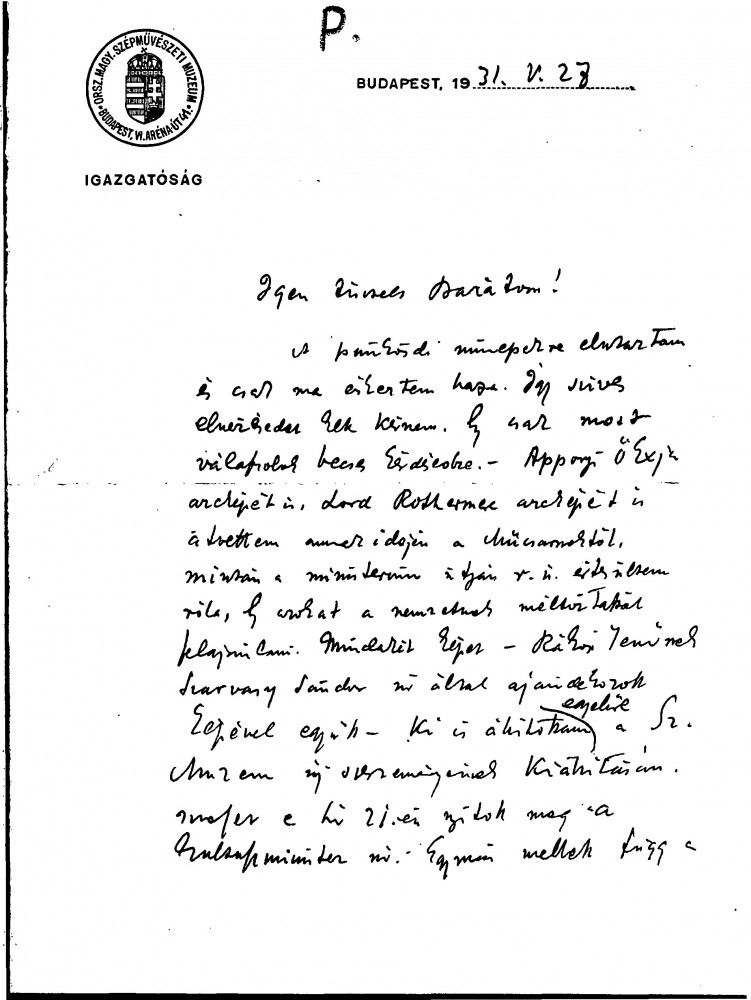 P.
ORSZ. MAGY. SZÉPMŰVÉSZETI MUZEUM
BUDAPEST, VI. ARÉNA-ÚT 41.
IGAZGATÓSÁG
BUDAPEST, 1931. V. 27
Igen tisztelt Barátom!
A pünkösdi ünnepekre elutaztam
és csak ma érkeztem haza. Így szíves
elnézésedet kell kérnem, hogy csak most
válaszolok becses kérdésedre. – Apponyi Ő Exja
arcképét is, Lord Rothermere arcképét is
átvettem annak idején a Műcsarnoktól,
miután a miniterium útján értesültem
róla, hogy azokat a nemzetnek méltóztattál
felajánlani. Mindakét képet – Rákosi Jenőnek
Szarvasy Sándor úr által ajándékozott
képével együtt – ki is állítottam egyelőre a Sz.
Muzeum új szerzeményeinek kiállításán,
melyet e hó 21.-én nyitott meg a
kultuszminiszter úr. – Egymás mellett függ a